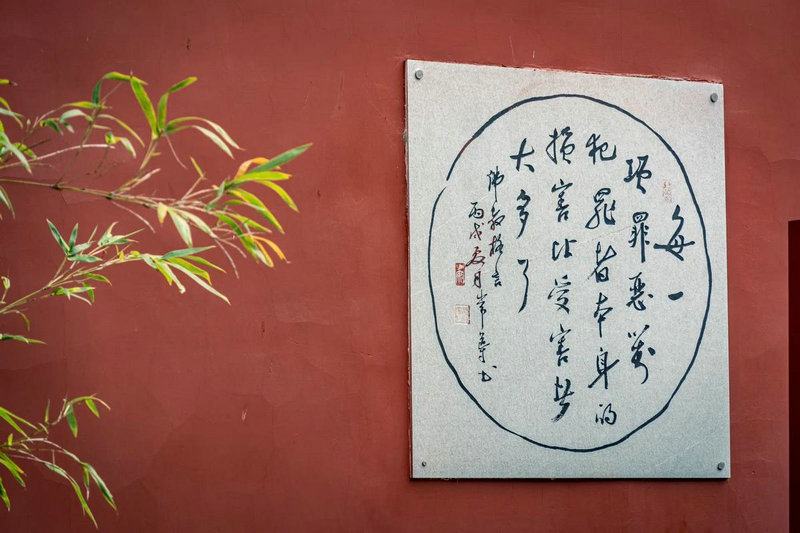 每一
项罪恶对
犯罪者本身的
损害比受害者
大多了
佛教格言
丙戌夏月